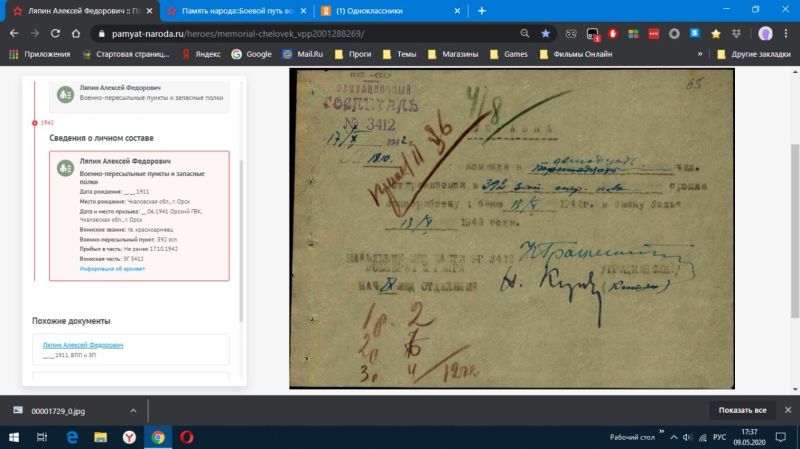 Ляпин Алексей Федорович :: Па
Память народа::Боевой путь во
(1) Одноклассники
pamyat-naroda.ru/heroes/memorial-chelovek_vpp2001288269/
Приложения
Стартовая страниц...
Яндекс
Google
Mail.Ru
Проги
Темы
Магазины
Games
Фильмы Онлайн
Другие закладки
Ляпин Алексей Федорович
Военно-пересыльные пункты и запасные полки
1942
Сведения о личном составе
Ляпин Алексей Федорович
Военно-пересыльные пункты и запасные
полки
Дата рождения: __.__.1911
Место рождения: Чкаловская обл., г. Орск
Дата и место призыва: __.06.1941 Орский ГВК,
Чкаловская обл., г. Орск
Воинское звание: гв. красноармеец
Военно-пересыльный пункт: 392 зсп
Прибыл в часть: Не ранее 17.10.1942
Воинская часть: ЭГ 3412
Информация об архиве+
Похожие документы
Ляпин Алексей Федорович
__.__.1911, ВПП и ЗП
65
4/8
ГОСПИТАЛЬ
№ 3412
17/X
1810.
команда в
чел.
392 зап. стр.
баню 13/X 1942г. и смену белья
13/X 1942 года.
ЭГ 3412
НАЧ
МЕД ОТДЕЛЕНИЯ
1р. 2
3
4/12
00001729_0.jpg
Показать все
Рабочий стол
РУС
17:37
09.05.2020